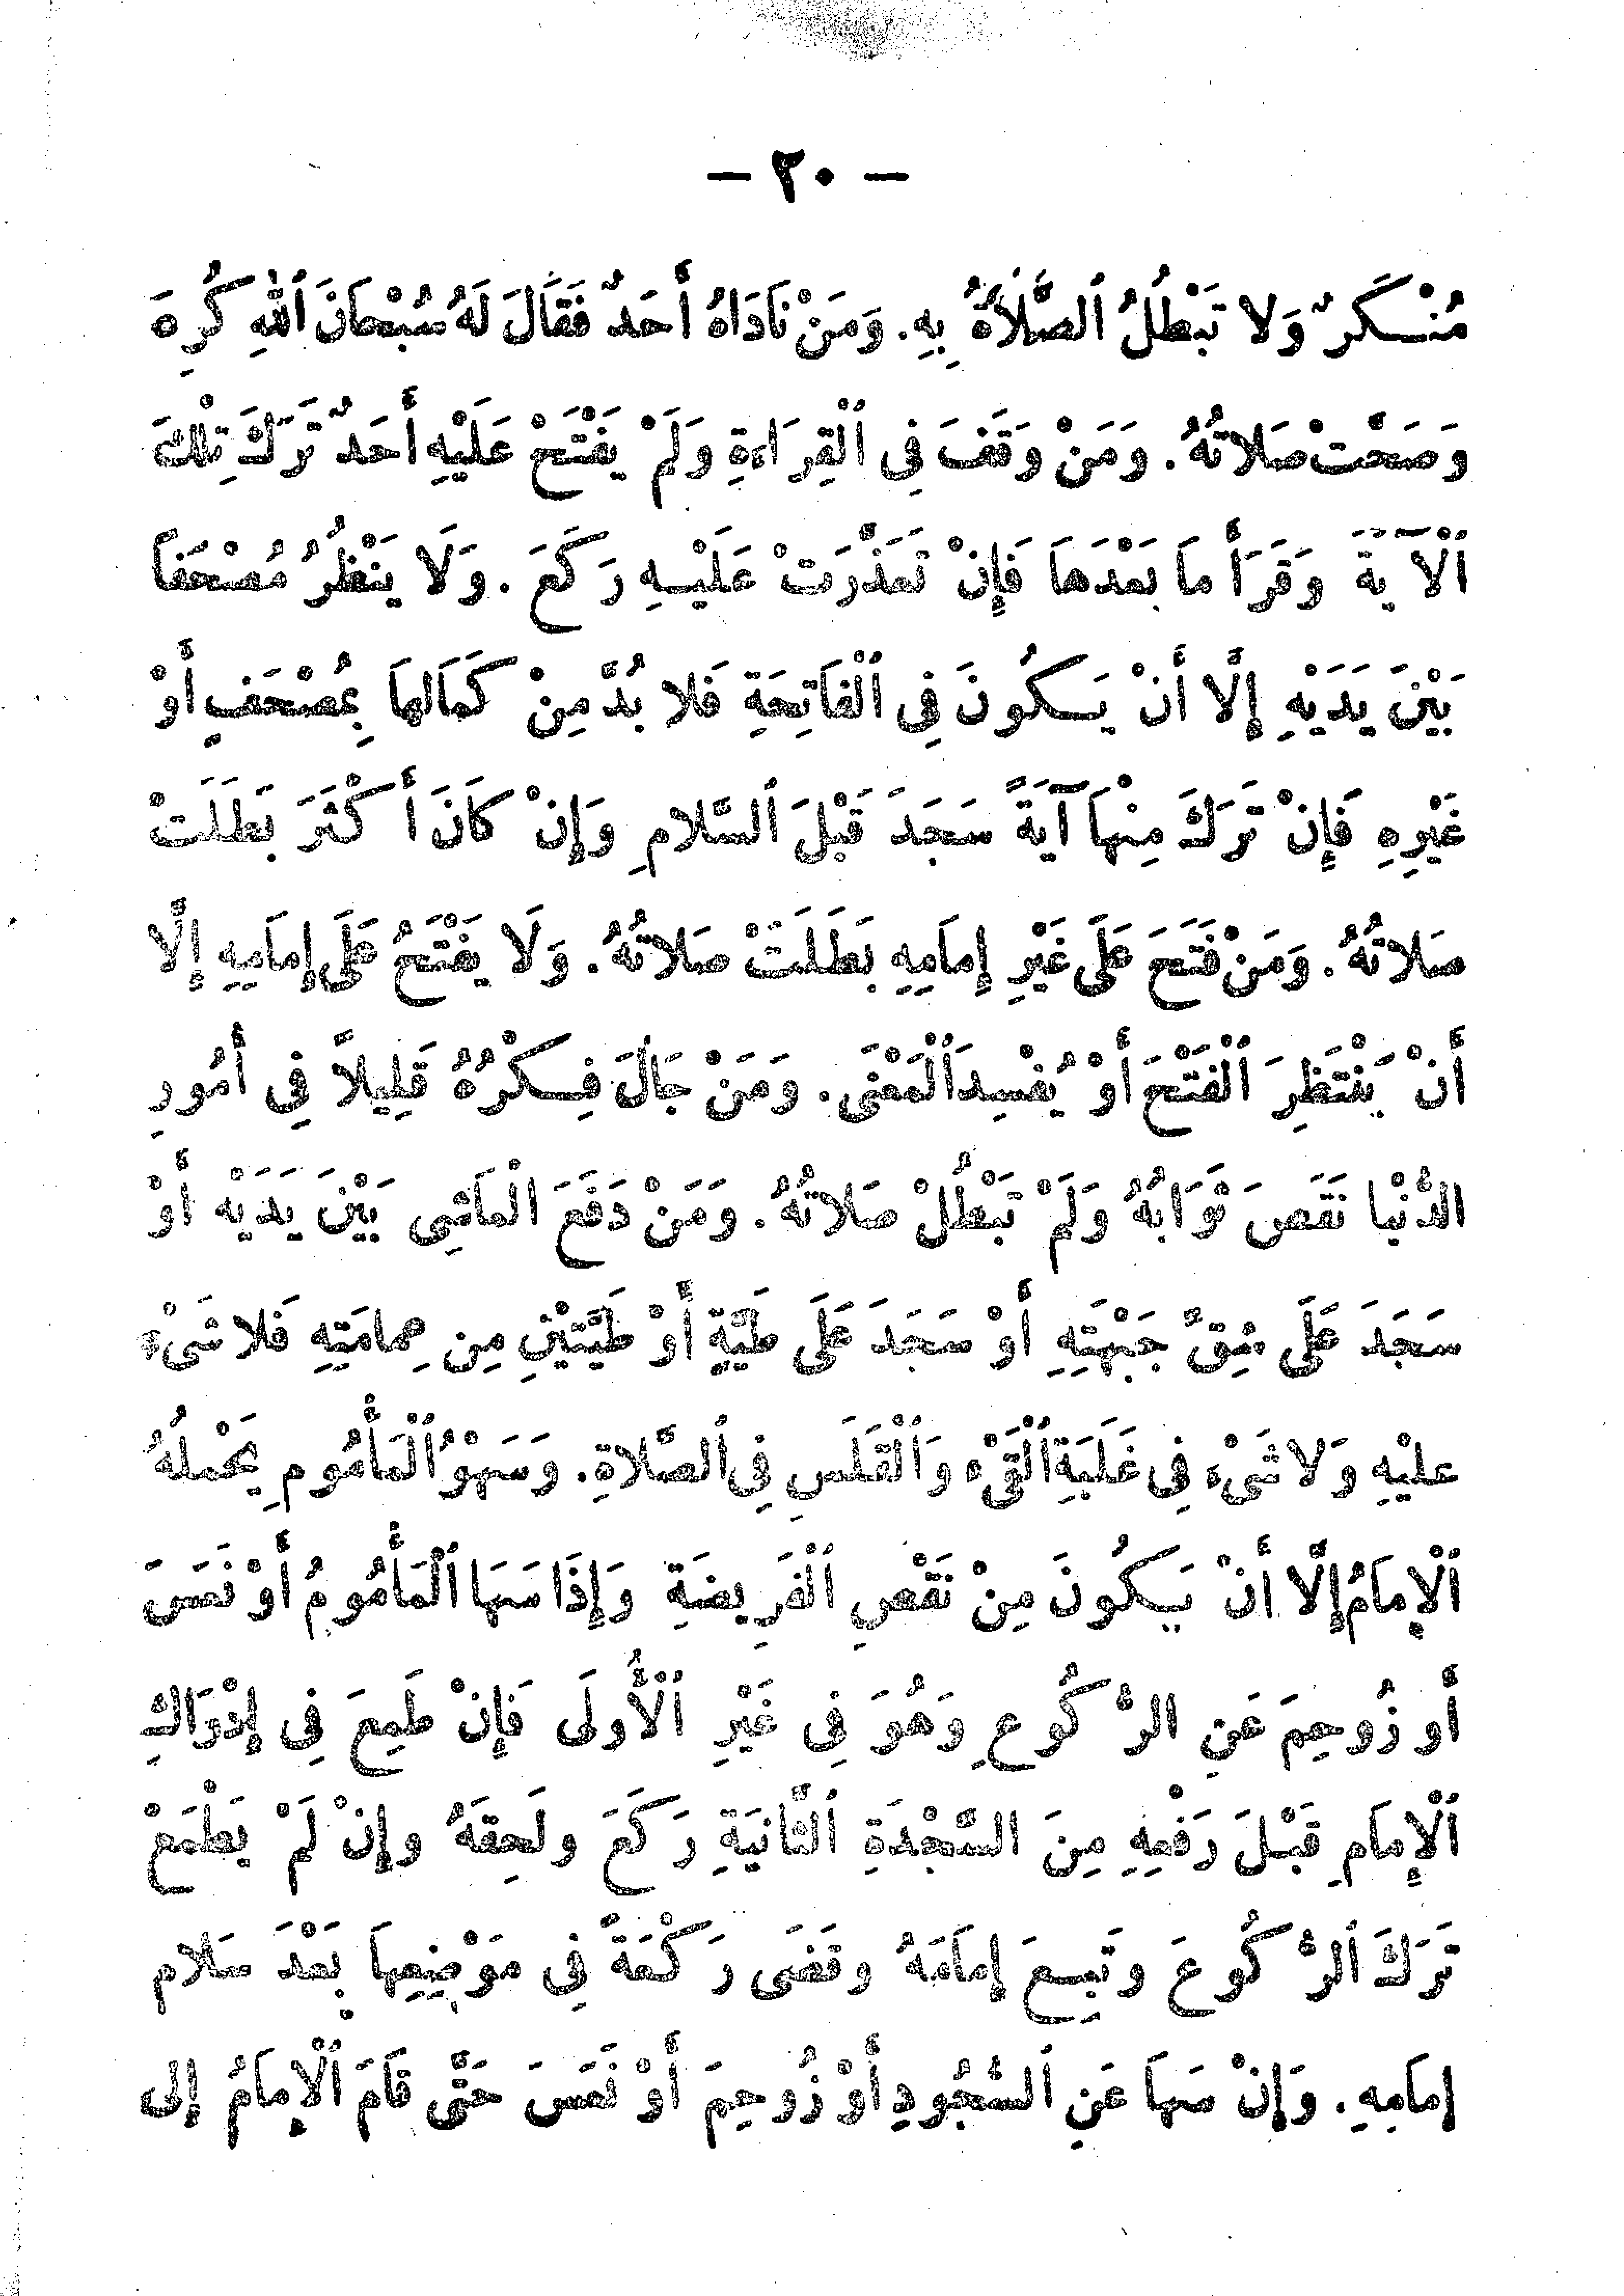 — ٢٠ —
مُنْكَرٌ وَلا تَبْطُلُ ٱلصَّلَاةُ بِهِ. وَمَنْ نَادَاهُ أَحَدٌ فَقَالَ لَهُ سُبْحَانَ ٱللهِ كُرِهَ
وَصَحَّتْ صَلاتُهُ. وَمَنْ وَقَفَ فِى ٱلْقِرَاءةِ وَلَمْ يَفْتَحْ عَلَيْهِ أَحَدٌ تَرَكَ تِلْكَ
ٱلْآيةَ وَقَرَأَ مَا بَعْدَهَا فَإِنْ تَعَذَّرَتْ عَلَيْهِ رَكَعَ. وَلَا يَنْظُرُ مُصْحَفاً
بَيْنَ يَدَيْهِ إِلَّا أَنْ يَكُونَ فِى ٱلْفَاتِحَةِ فَلا بُدَّ مِنْ كَمَالِهَا بِمُصْحَفٍ أَوْ
غَيْرِهِ فَإِنْ تَرَكَ مِنْهَا آيَةً سَجَدَ قَبْلَ ٱلسَّلامِ وَإِنْ كَانَ أَكْثَرَ بَطَلَتْ
صَلاتُهُ. وَمَنْ فَتَحَ عَلَى غَيْرِ إِمَامِهِ بَطَلَتْ صَلاتُهُ. وَلَا يَفْتَحُ عَلَى إِمَامِهِ إِلَّا
أَنْ يَنْتَظِرَ ٱلْفَتْحَ أَوْ يُفْسِدَ ٱلْمَعْنَى. وَمَنْ جَالَ فِكْرُهُ قَلِيلاً فِى أُمُورِ
الدُّنْيا نَقَصَ ثَوَابُهُ وَلَمْ تَبْطُلْ صَلاتُهُ. وَمَنْ دَفَعَ الْمَاشِى بَيْنَ يَدَيْهِ أَوْ
سَجَدَ عَلَى شِقِّ جَبْهَتِهِ أَوْ سَجَدَ عَلَى طَيَّةٍ أَوْ طَيَّتَيْنِ مِن عِمامَتِهِ فَلا شَىْءَ
عليْهِ وَلا شَىْءَ فِى غَلَبَةِ ٱلْقَىْءِ وَٱلْقَلَسِ فِى ٱلصَّلاةِ. وَسَهْوُ ٱلْمَأْمُومِ يَحْمِلُهُ
ٱلْإِمَامُ إِلَّا أَنْ يَكُونَ مِنْ نَقْصِ ٱلْفَرِيضَةِ وَإِذَا سَهَا ٱلْمَأْمُومُ أَوْ نَعَسَ
أَو زُوحِمَ عَنِ الرُّكُوعِ وَهُوَ فِى غَيْرِ ٱلْأُولَى فَإِنْ طَمِعَ فِى إِدْرَاكِ
ٱلْإِمَامِ قَبْلَ رَفْعِهِ مِنَ السَّجْدَةِ ٱلثَّانِيَةِ رَكَعَ ولَحِقَهُ وإِنْ لَمْ يَطْمَعْ
تَرَكَ ٱلرُّكُوعَ وتَبِعَ إِمَامَهُ وقَضَى رَكْعَةً فِى مَوْضِعِهَا بَعْدَ سَلام
إمَامِهِ. وَإِنْ سَهَا عَنِ ٱلسُّجُودِ أَوْ زُوحِمَ أَوْ نَعَسَ حَتَّى قَامَ ٱلْإِمَامُ إلى